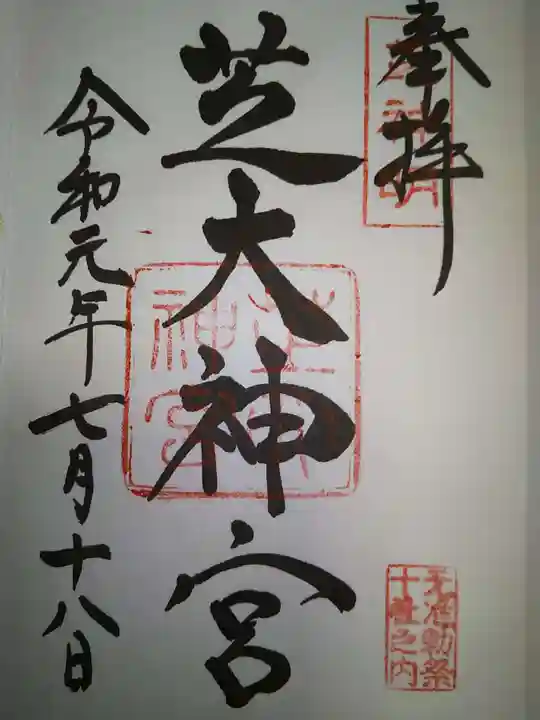 奉拝
芝大神宮
令和元年七月十八日
芝大
神宮
元准勅祭
十社之内